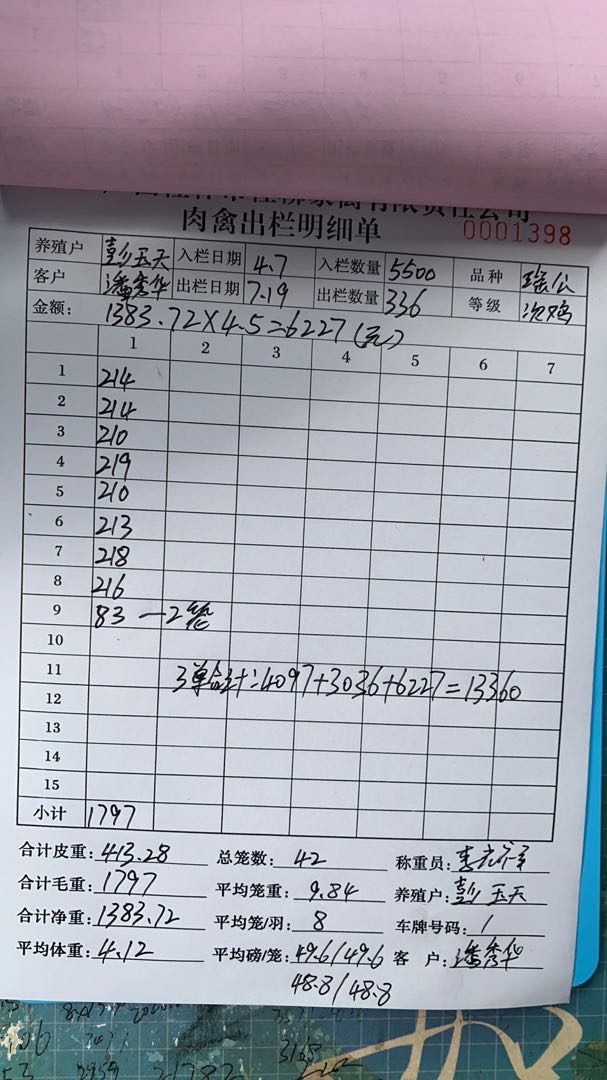 肉禽出栏明细单 0001398
养殖户 彭玉天 入栏日期 4.7 入栏数量 5500 品种 瑶公
客户 潘秀华 出栏日期 7.19 出栏数量 336 等级 次鸡
金额: 1383.72×4.5=6227(元)
1 2 3 4 5 6 7
1 214
2 214
3 210
4 219
5 210
6 213
7 218
8 216
9 83 —2笼
10
11 3单合计:4097+3036+6227=13360
12
13
14
15
小计 1797
合计皮重: 413.28 总笼数: 42 称重员:
合计毛重: 1797 平均笼重: 9.84 养殖户: 彭玉天
合计净重: 1383.72 平均笼/羽: 8 车牌号码: /
平均体重: 4.12 平均磅/笼: 49.6/49.6 客户: 潘秀华
48.8/48.8